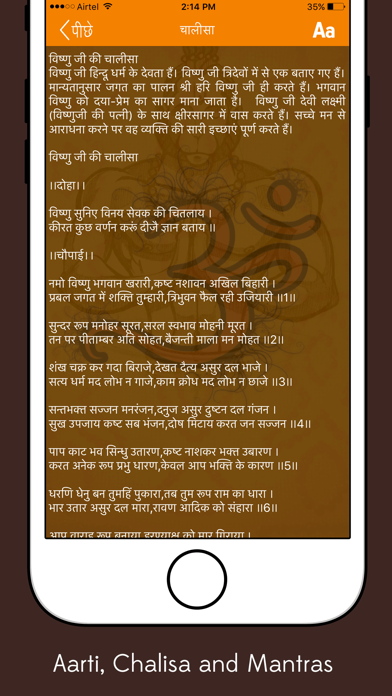 Airtel 2:14 PM 35%
पीछे चालीसा Aa
विष्णु जी की चालीसा
विष्णु जी हिन्दू धर्म के देवता हैं। विष्णु जी त्रिदेवों में से एक बताए गए हैं।
मान्यतानुसार जगत का पालन श्री हरि विष्णु जी ही करते हैं। भगवान
विष्णु को दया-प्रेम का सागर माना जाता है। विष्णु जी देवी लक्ष्मी
(विष्णुजी की पत्नी) के साथ क्षीरसागर में वास करते हैं। सच्चे मन से
आराधना करने पर वह व्यक्ति की सारी इच्छाएं पूर्ण करते हैं।
विष्णु जी की चालीसा
।।दोहा।।
विष्णु सुनिए विनय सेवक की चितलाय ।
कीरत कुछ वर्णन करूं दीजै ज्ञान बताय ॥
।।चौपाई।।
नमो विष्णु भगवान खरारी,कष्ट नशावन अखिल बिहारी ।
प्रबल जगत में शक्ति तुम्हारी,त्रिभुवन फैल रही उजियारी ॥1॥
सुन्दर रूप मनोहर सूरत,सरल स्वभाव मोहनी मूरत ।
तन पर पीताम्बर अति सोहत,बैजन्ती माला मन मोहत ॥2॥
शंख चक्र कर गदा बिराजे,देखत दैत्य असुर दल भाजे ।
सत्य धर्म मद लोभ न गाजे,काम क्रोध मद लोभ न छाजे ॥3॥
सन्तभक्त सज्जन मनरंजन,दनुज असुर दुष्टन दल गंजन ।
सुख उपजाय कष्ट सब भंजन,दोष मिटाय करत जन सज्जन ॥4॥
पाप काट भव सिन्धु उतारण,कष्ट नाशकर भक्त उबारण ।
करत अनेक रूप प्रभु धारण,केवल आप भक्ति के कारण ॥5॥
धरणि धेनु बन तुमहिं पुकारा,तब तुम रूप राम का धारा ।
भार उतार असुर दल मारा,रावण आदिक को संहारा ॥6॥
आप वाराह रूप बनाया,हरण्याक्ष को मार गिराया ।
Aarti, Chalisa and Mantras